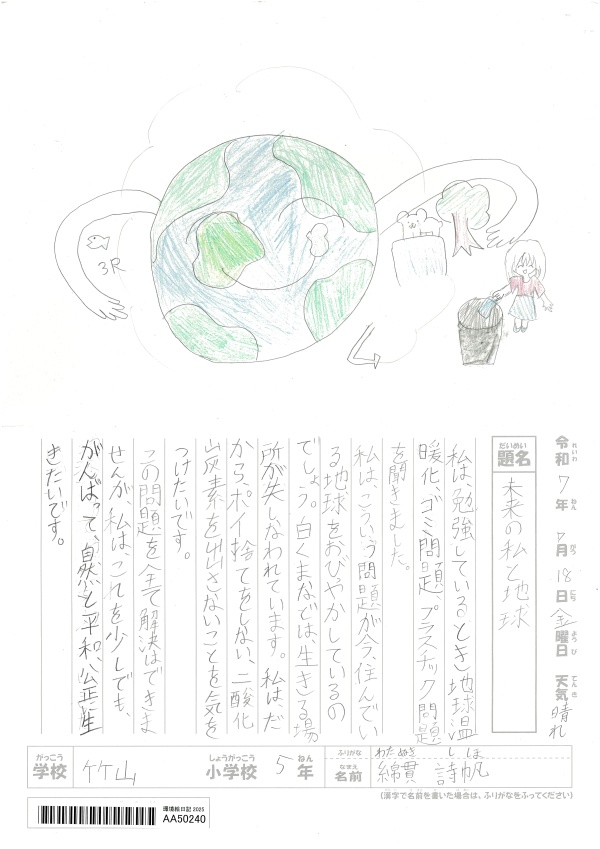 3R
令和7年7月18日金曜日 天気晴れ
れいわ ねん がつ にち ようび てんき
だいめい
題名
未来の私と地球
私は、勉強しているとき、地球温
暖化、ゴミ問題、プラスチック問題
を聞きました。
私は、こういう問題が今、住んでい
る地球をおびやかしているの
でしょう。白くまなどでは、生きる場
所が失しなわれています。私は、だ
から、ポイ捨てをしない、二酸化
炭素を出さないことを気を
つけたいです。
この問題を全て解決はできま
せんが、私は、これを少しでも、
がんばって、自然と平和、公正に生
きたいです。
がっこう
学校
竹山
しょうがっこう
小学校
5年
ねん
ふりがな
わたぬき しほ
なまえ
名前
綿貫 詩帆
(漢字で名前を書いた場合は、ふりがなをふってください)
環境絵日記 2025
AA50240